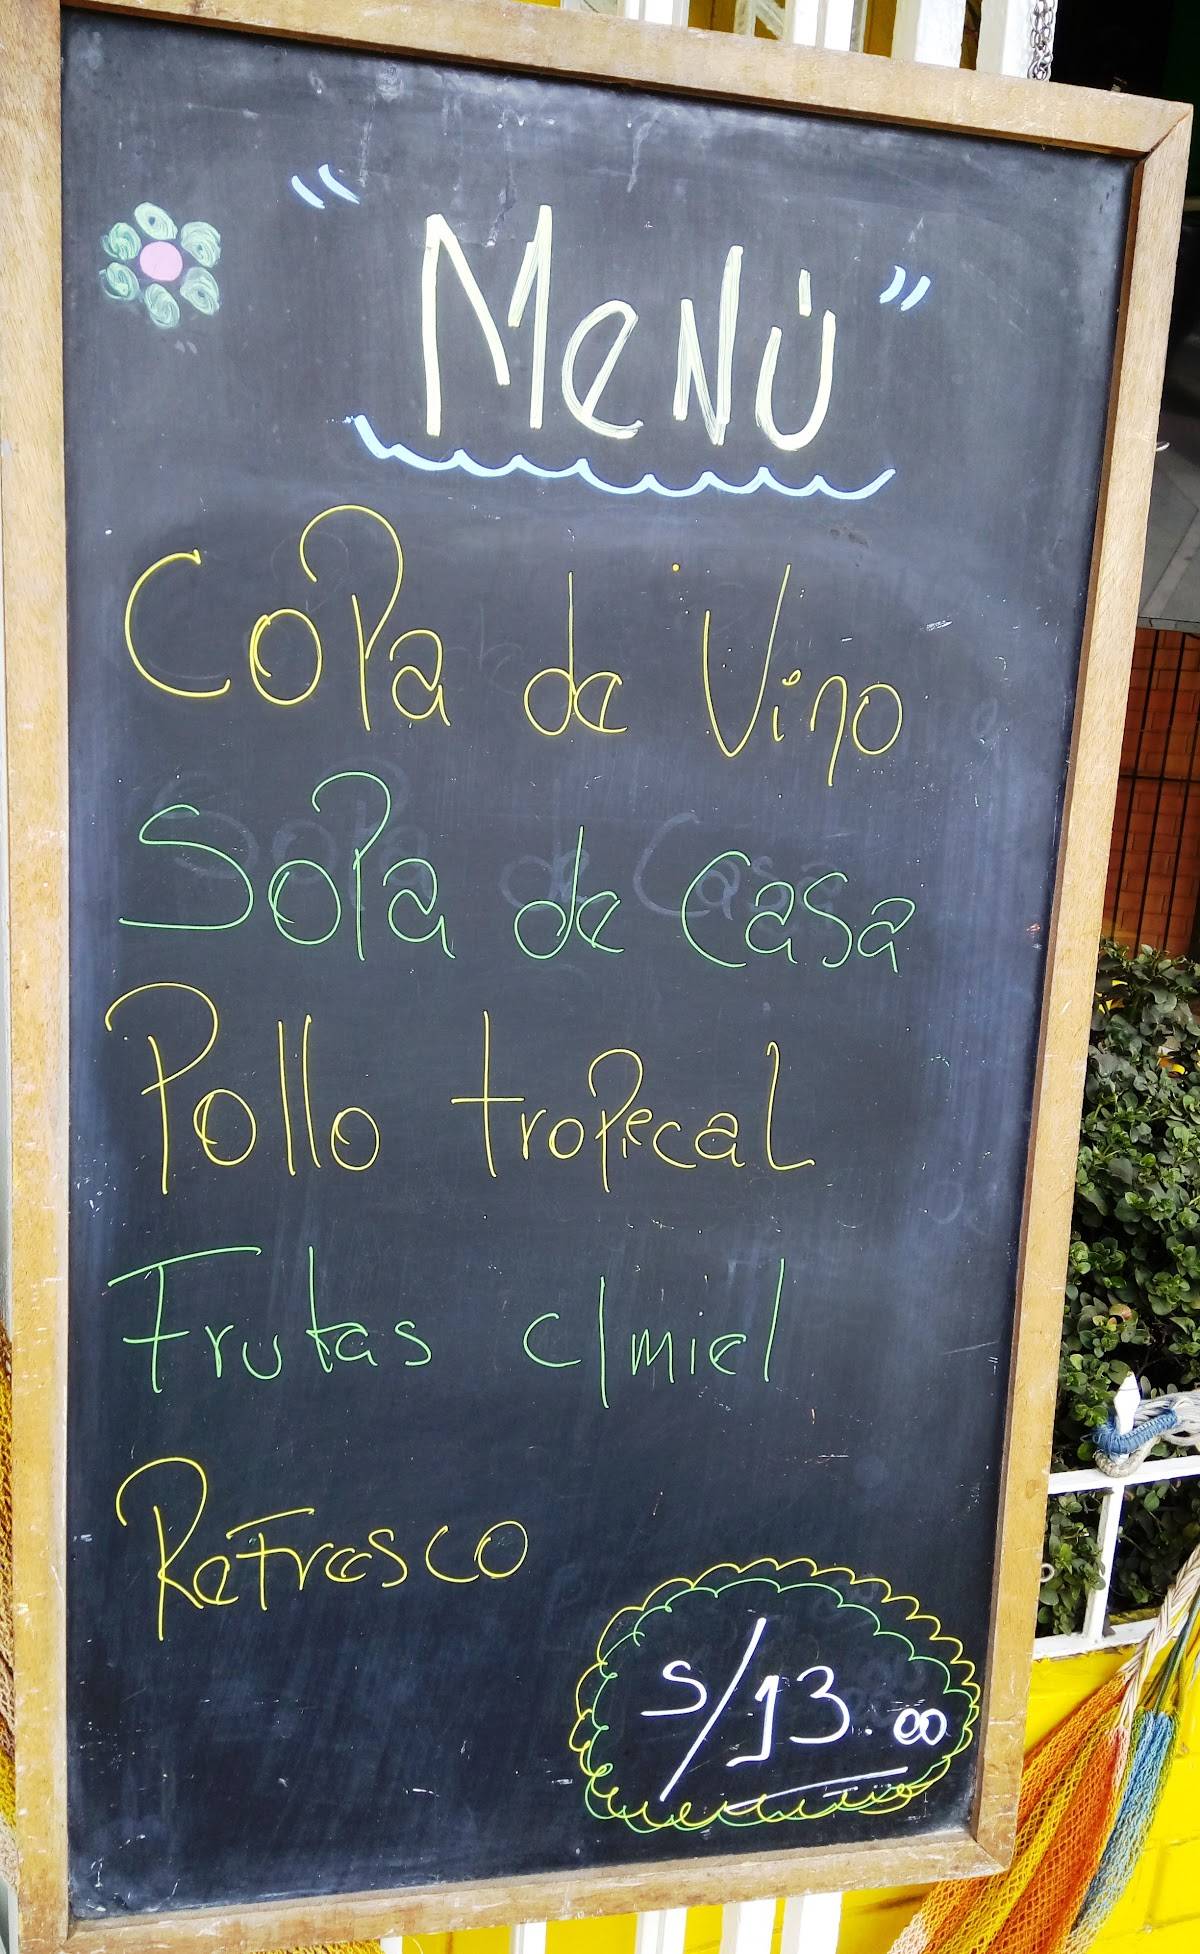 "Menú"
Copa de Vino
Sopa de Casa
Pollo tropecal
Frutas c/miel
Refresco
S/13.00